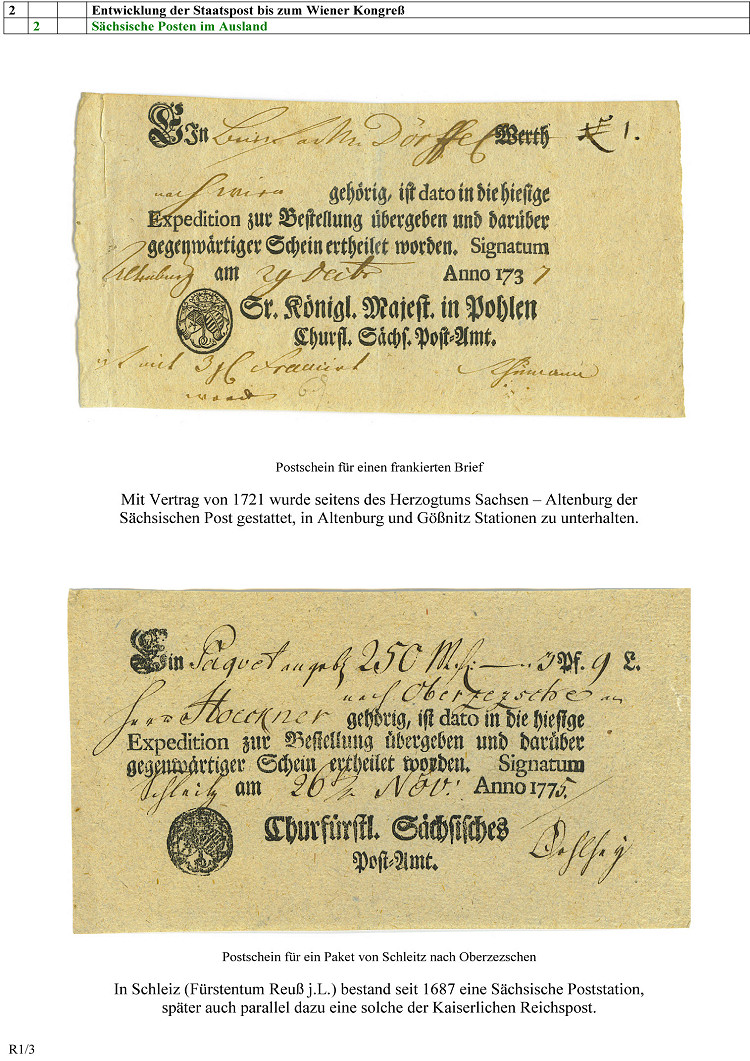 2 Entwicklung der Staatspost bis zum Wiener Kongreß
2 Sächsische Posten im Ausland
Ein Dörffel Werth 1.
nach gehörig, ist dato in die hiesige
Expedition zur Bestellung übergeben und darüber
gegenwärtiger Schein ertheilet worden. Signatum
Altenburg am 29 Decbr Anno 1737
Sr. Königl. Majest. in Pohlen
Churfl. Sächs. Post-Amt.
mit 3
Postschein für einen frankierten Brief
Mit Vertrag von 1721 wurde seitens des Herzogtums Sachsen – Altenburg der
Sächsischen Post gestattet, in Altenburg und Gößnitz Stationen zu unterhalten.
Ein Paquet 250 3 Pf. 9 L.
nach Oberzezsche an
Herrn Hoeckner gehörig, ist dato in die hiesige
Expedition zur Bestellung übergeben und darüber
gegenwärtiger Schein ertheilet worden. Signatum
Schleitz am 26 Nov: Anno 1775.
Churfürstl. Sächsisches
Post-Amt.
Postschein für ein Paket von Schleitz nach Oberzezschen
In Schleiz (Fürstentum Reuß j.L.) bestand seit 1687 eine Sächsische Poststation,
später auch parallel dazu eine solche der Kaiserlichen Reichspost.
R1/3